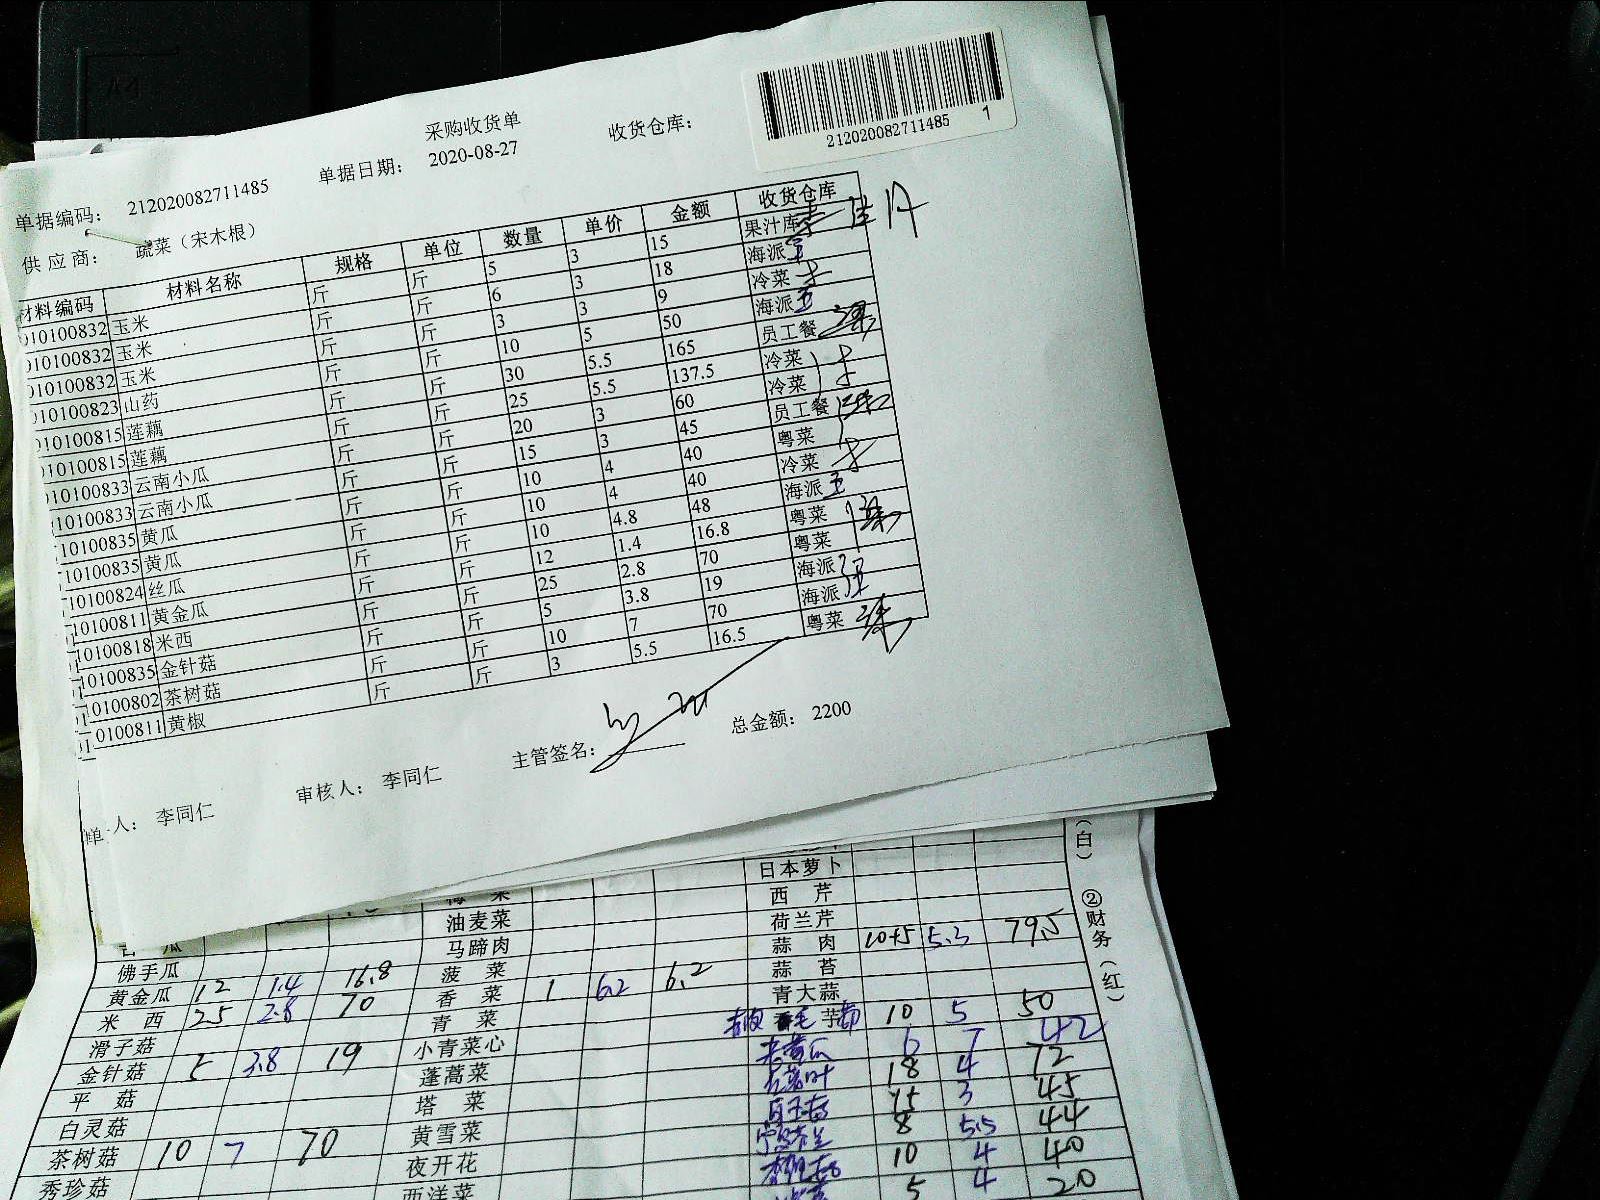 采购收货单
收货仓库：
212020082711485 1
单据编码： 212020082711485 单据日期： 2020-08-27
供应商： 蔬菜（宋木根）
材料编码 材料名称 规格 单位 数量 单价 金额 收货仓库
010100832 玉米 斤 斤 5 3 15 果汁库
010100832 玉米 斤 斤 6 3 18 海派
010100832 玉米 斤 斤 3 3 9 冷菜
010100823 山药 斤 斤 10 5 50 海派
010100815 莲藕 斤 斤 30 5.5 165 员工餐
010100815 莲藕 斤 斤 25 5.5 137.5 冷菜
010100833 云南小瓜 斤 斤 20 3 60 冷菜
10100833 云南小瓜 斤 斤 15 3 45 员工餐
10100835 黄瓜 斤 斤 10 4 40 粤菜
10100835 黄瓜 斤 斤 10 4 40 冷菜
10100824 丝瓜 斤 斤 10 4.8 48 海派
10100811 黄金瓜 斤 斤 12 1.4 16.8 粤菜
10100818 米西 斤 斤 25 2.8 70 粤菜
10100835 金针菇 斤 斤 5 3.8 19 海派
10100802 茶树菇 斤 斤 10 7 70 海派
0100811 黄椒 斤 斤 3 5.5 16.5 粤菜
人： 李同仁 审核人： 李同仁 主管签名： 总金额： 2200
（白） ②财务（红）
日本萝卜
西芹
油麦菜 荷兰芹
马蹄肉 蒜肉 10+5 5.3 79.5
佛手瓜 菠菜 蒜苔
黄金瓜 12 1.4 16.8 香菜 1 6.2 6.2 青大蒜
米西 25 2.8 70 青菜 10 5 50
滑子菇 小青菜心 6 7 42
金针菇 5 3.8 19 蓬蒿菜 18 4 72
平菇 塔菜 15 3 45
白灵菇 黄雪菜 8 5.5 44
茶树菇 10 7 70 夜开花 10 4 40
秀珍菇 西洋菜 5 4 20